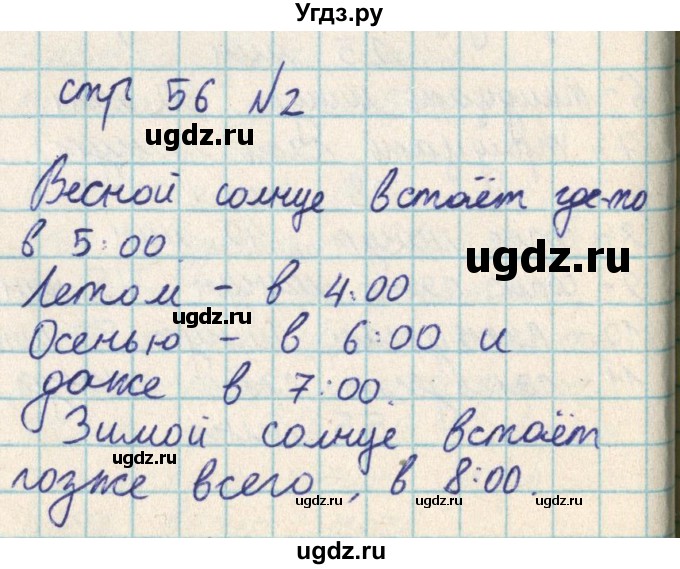 Угдз.ру
стр 56 №2
ugdz.ru
Весной солнце встаёт где-то
в 5:00
ugdz.ru
Летом - в 4:00
ugdz.ru
Осенью - в 6:00 и
даже в 7:00.
ugdz.ru
Зимой солнце встаёт
ugdz.ru
позже всего, в 8:00.
ugdz.ru ugdz.ru
ugdz.ru